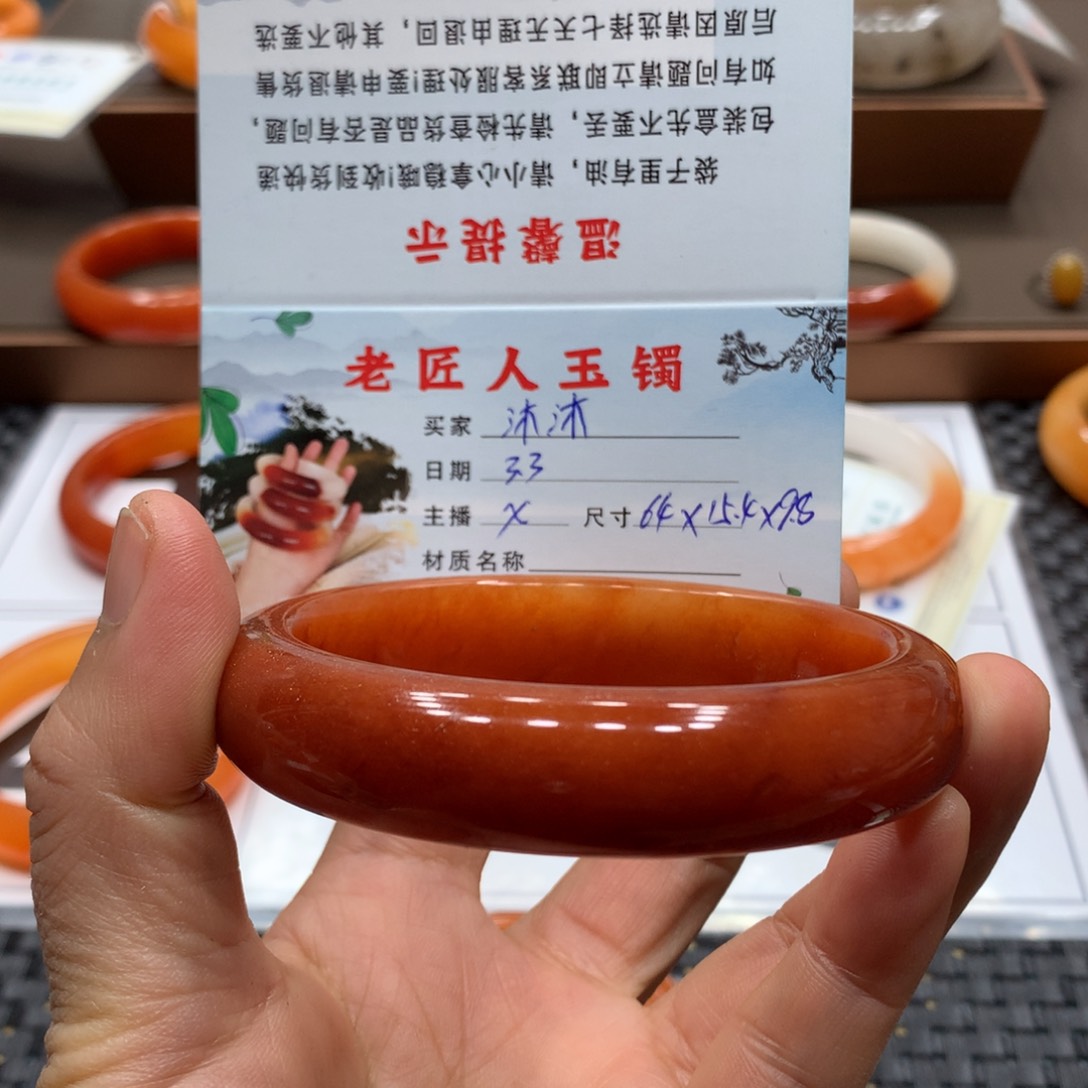 温馨提示
袋子里有油，请小心拿稳哦!收到货快递
包装盒先不要丢，请先检查货品是否有问题，
如有问题请立即联系客服处理!要申请退货售
后原因请选择七天无理由退回，其他不要选
老匠人玉镯
买家 沐沐
日期 3.3
主播 X 尺寸 64X15.4X9.8
材质名称